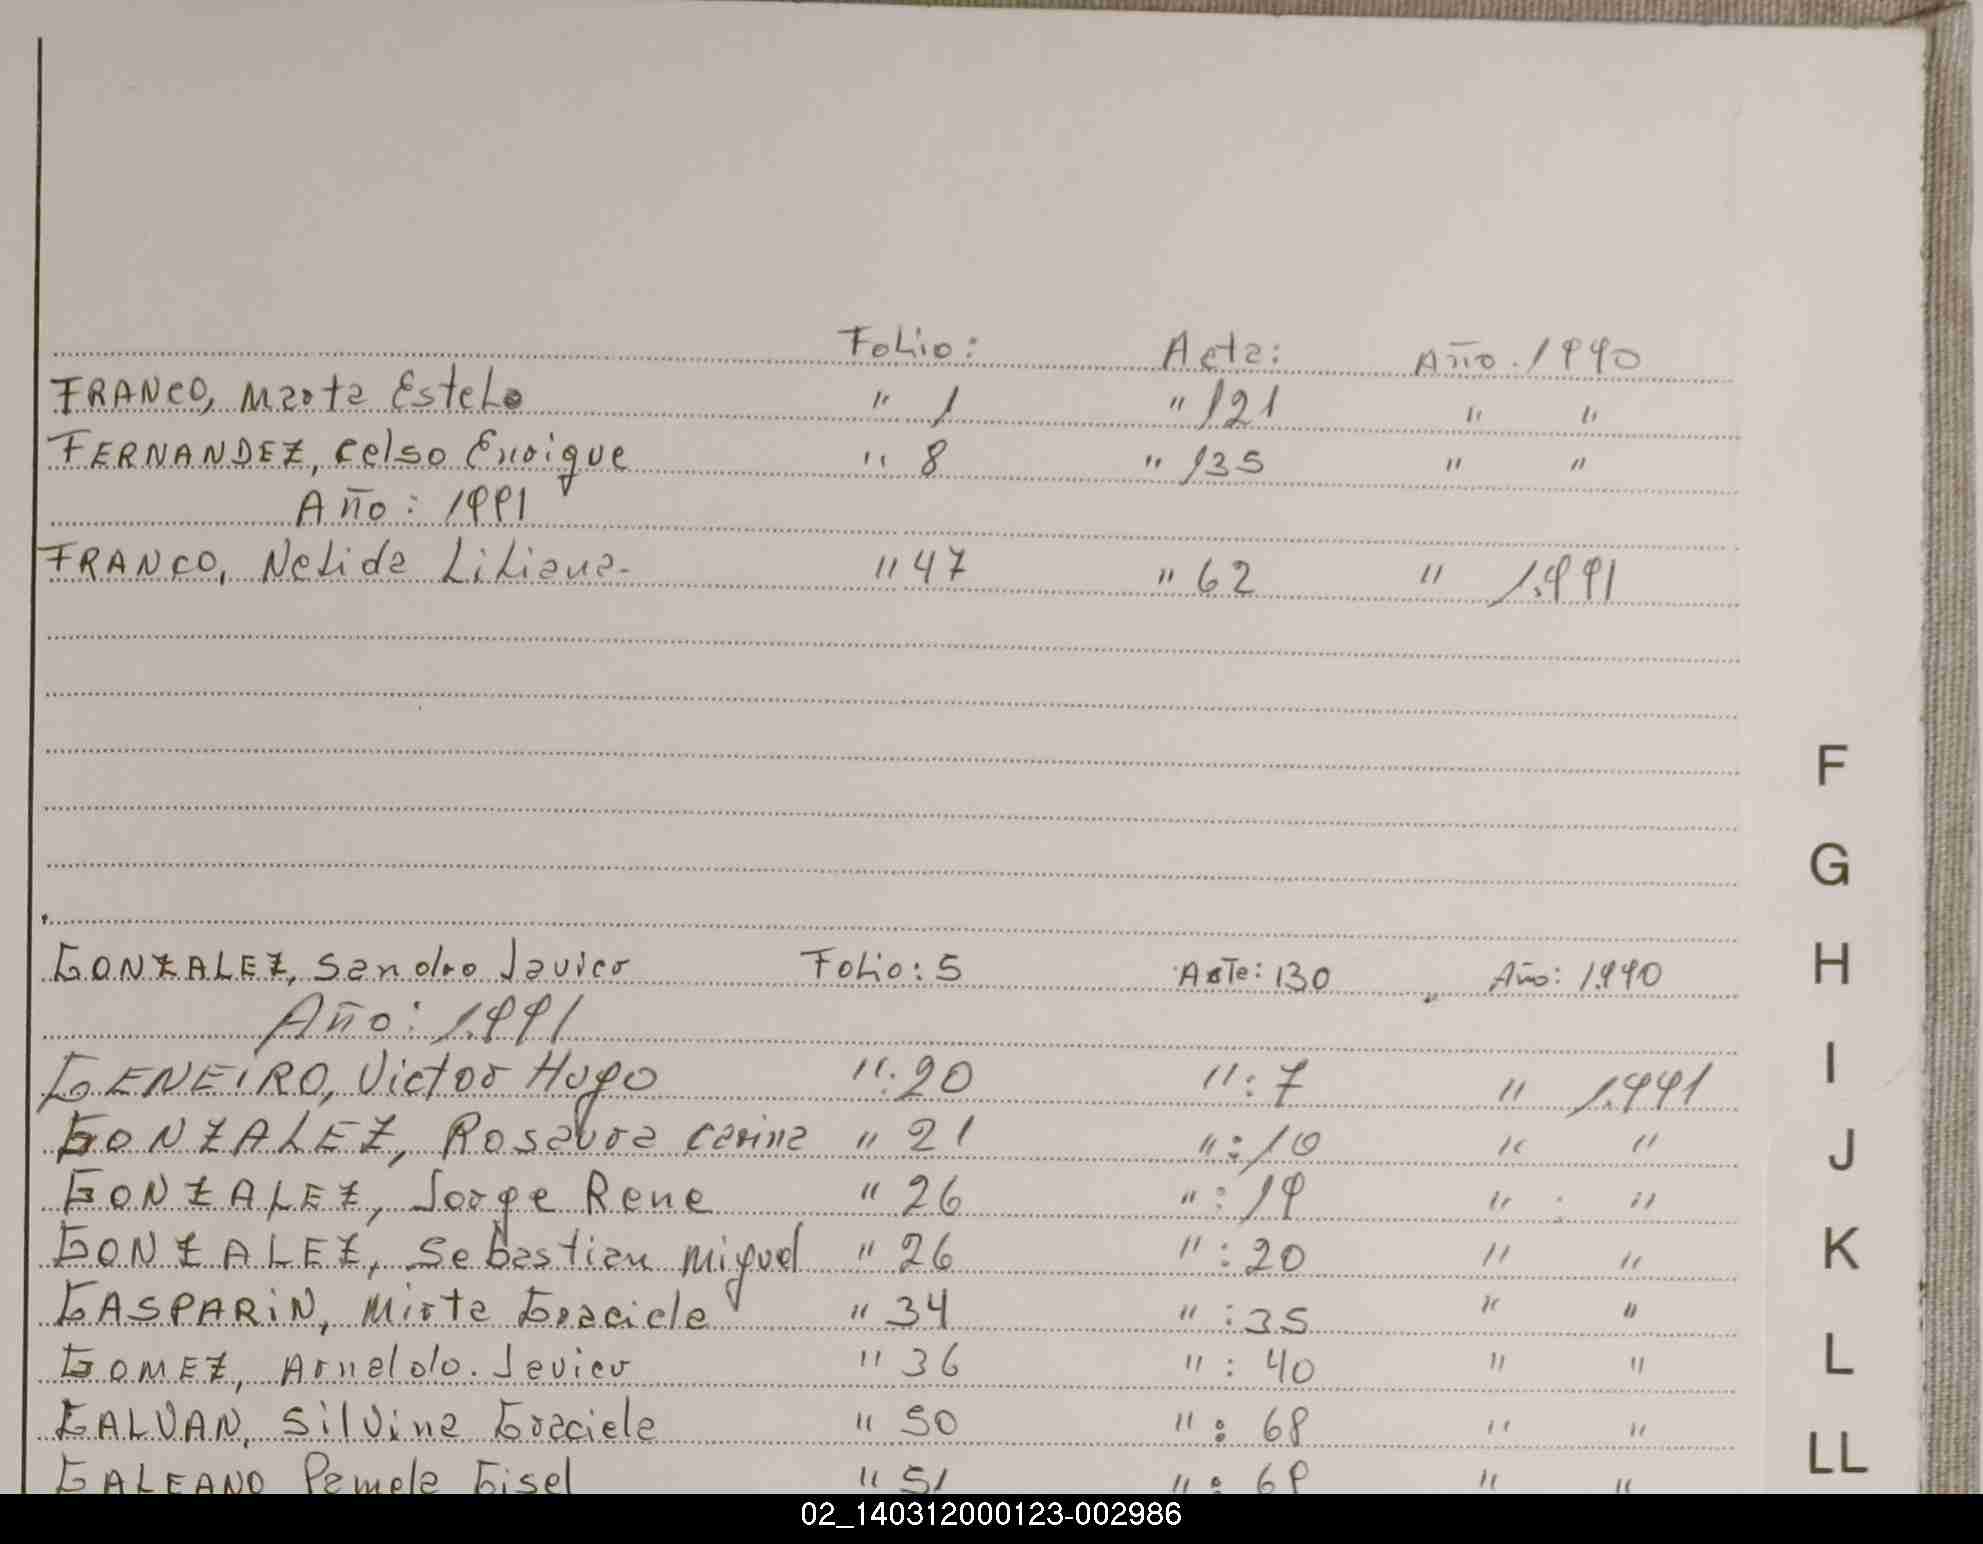 Folio: Acta: Año. 1990
FRANCO, Marta Estela " 1 " 121 " "
FERNANDEZ, Celso Enrique " 8 " 135 " "
Año: 1991
FRANCO, Nelida Liliana- " 47 " 62 " 1.991
F
G
GONZALEZ, Sandro Javier Folio: 5 Acta: 130 Año: 1.990
H
Año: 1.991
GENEIRO, Victor Hugo ": 20 ": 7 " 1.991
I
GONZALEZ, Rosaura Carina " 21 ": 10 " "
J
GONZALEZ, Jorge Rene " 26 ": 19 " "
GONZALEZ, Sebastian Miguel " 26 ": 20 " "
K
GASPARiN, Mirta Graciela " 34 ": 35 " "
GOMEZ, Arnaldo. Javier " 36 ": 40 " "
L
GALVAN, Silvina Graciela " 50 ": 68 " "
LL
GALEANO Pamela Gisel " 51 ": 69 " "
02_140312000123-002986